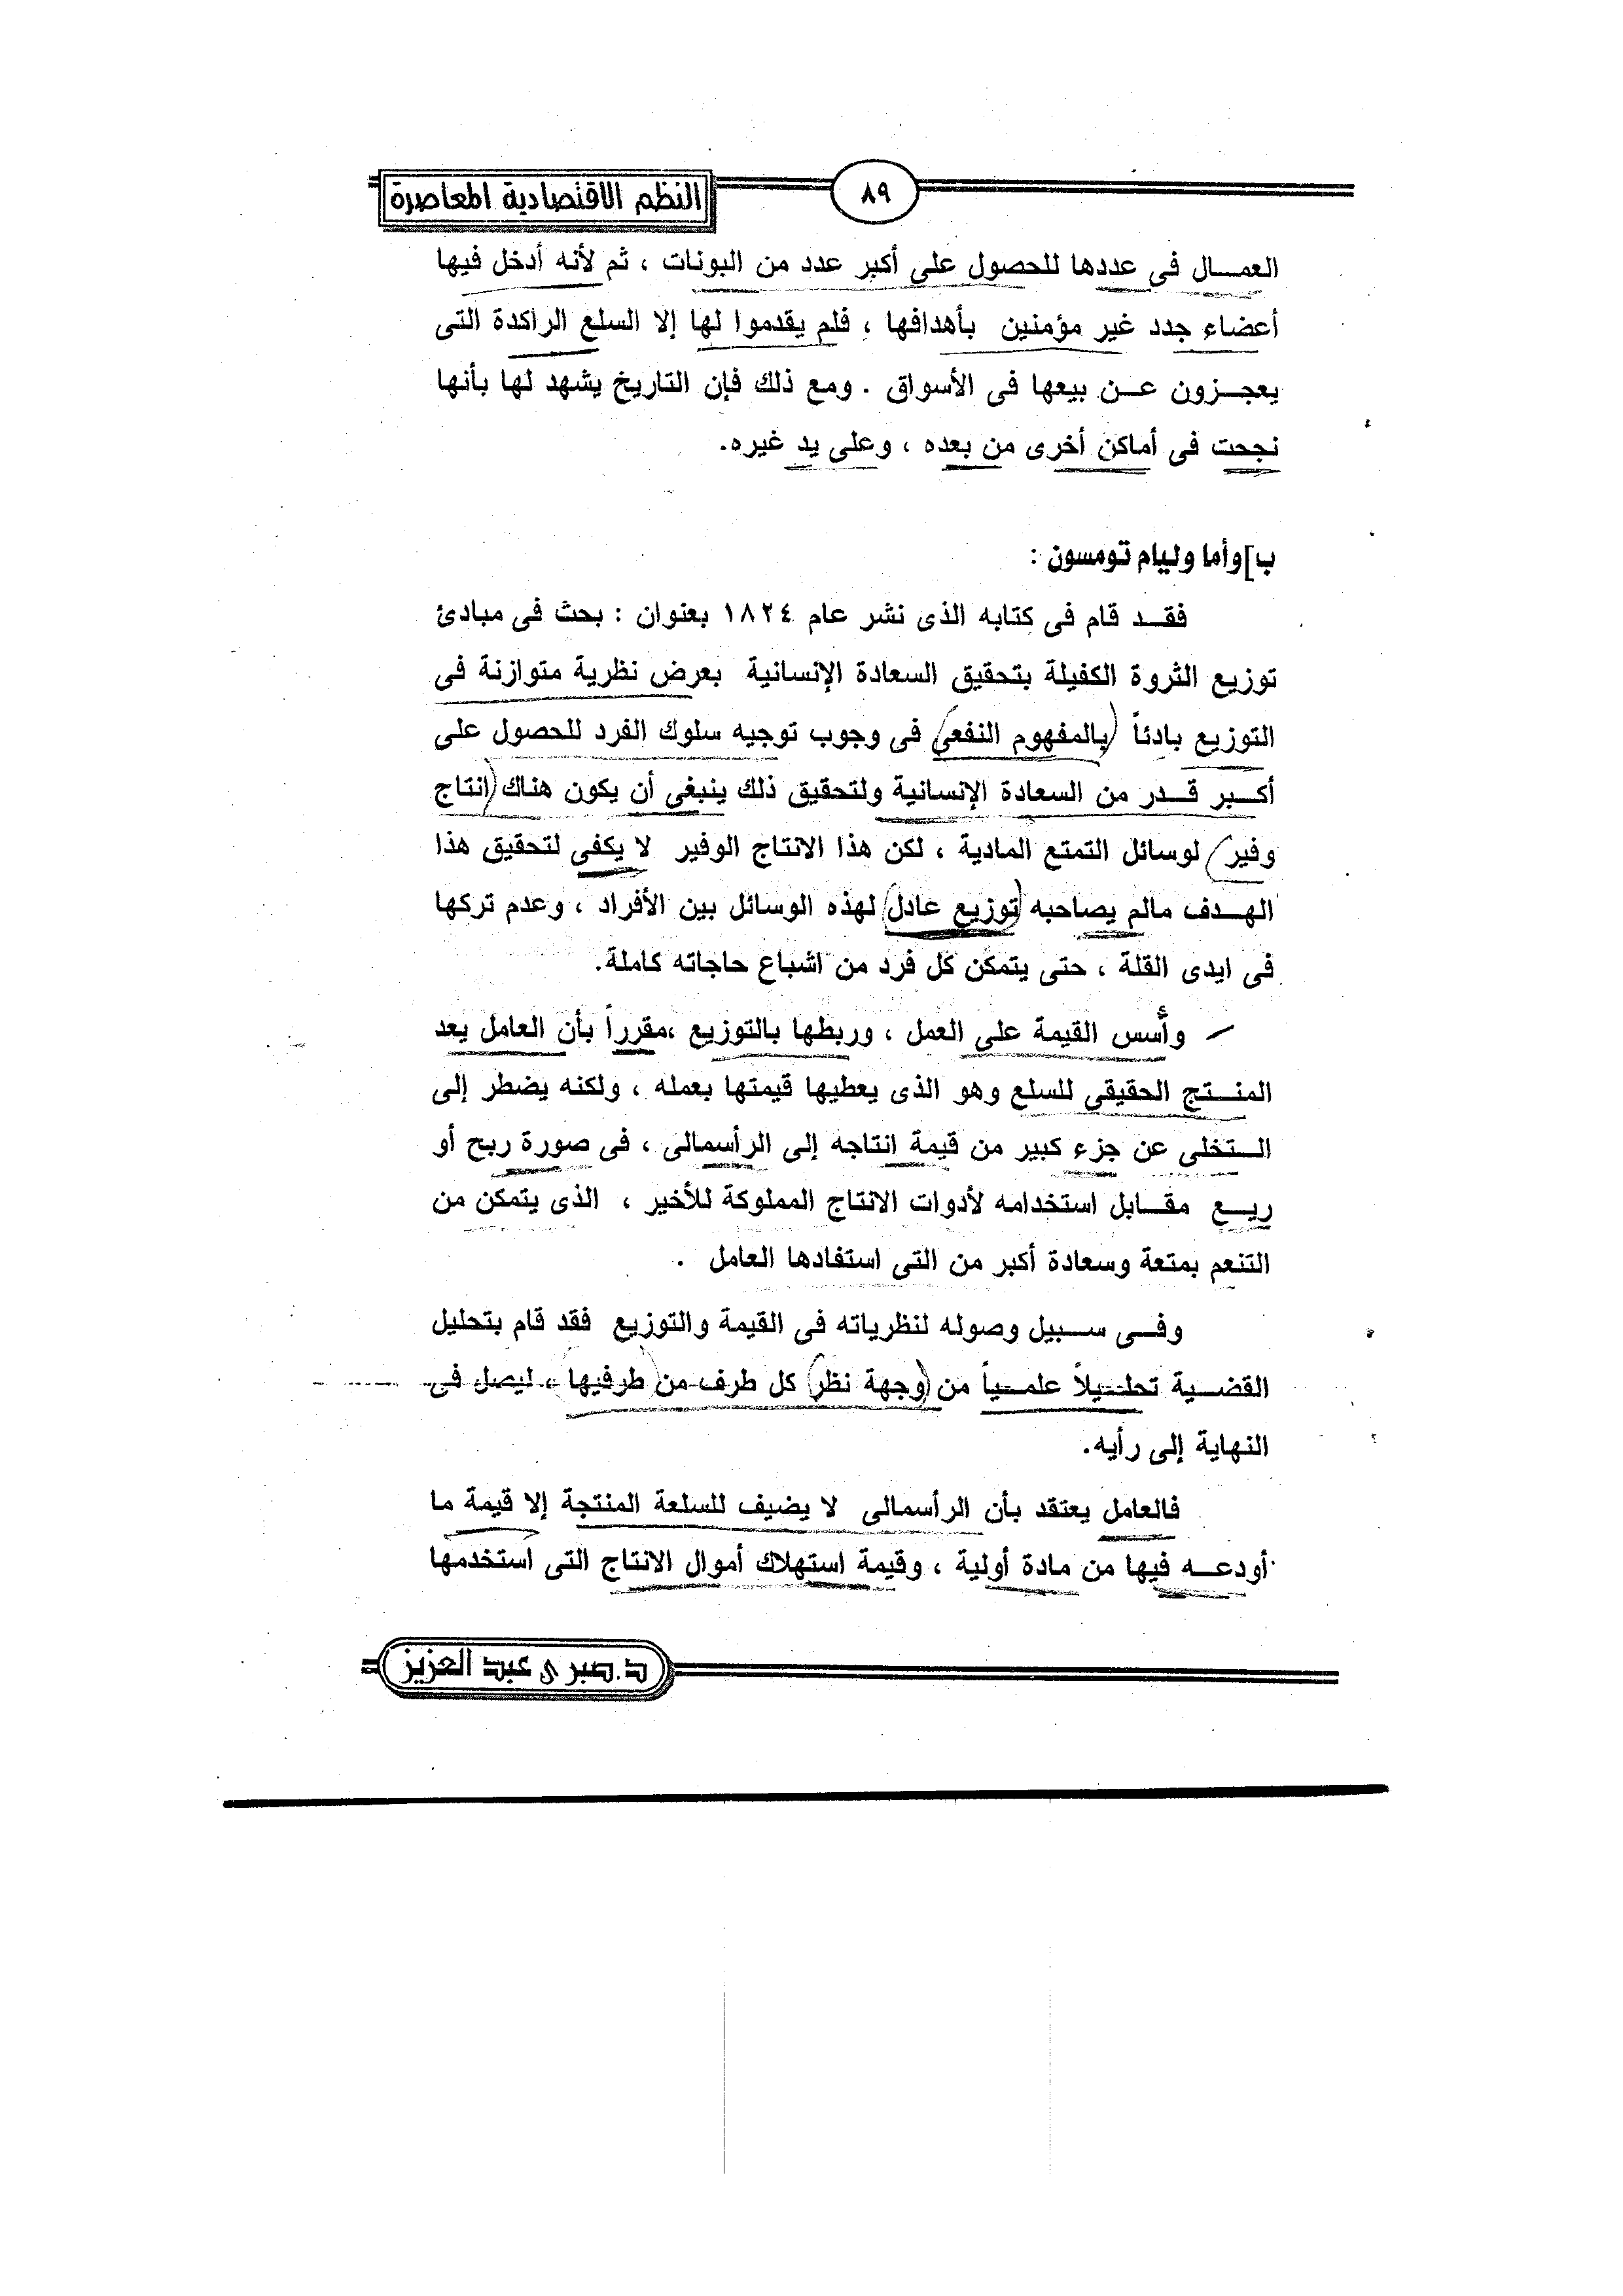 النظم الاقتصادية المعاصرة
٨٩
العمال فى عددها للحصول على أكبر عدد من البونات ، ثم لأنه أدخل فيها
أعضاء جدد غير مؤمنين بأهدافها ، فلم يقدموا لها إلا السلع الراكدة التى
يعجزون عن بيعها فى الأسواق . ومع ذلك فإن التاريخ يشهد لها بأنها
نجحت فى أماكن أخرى من بعده ، وعلى يد غيره.
ب]وأما وليام تومسون :
فقد قام فى كتابه الذى نشر عام ١٨٢٤ بعنوان : بحث فى مبادئ
توزيع الثروة الكفيلة بتحقيق السعادة الإنسانية بعرض نظرية متوازنة فى
التوزيع بادئاً (بالمفهوم النفعى) فى وجوب توجيه سلوك الفرد للحصول على
أكبر قدر من السعادة الإنسانية ولتحقيق ذلك ينبغى أن يكون هناك (انتاج
وفير) لوسائل التمتع المادية ، لكن هذا الانتاج الوفير لا يكفى لتحقيق هذا
الهدف مالم يصاحبه (توزيع عادل) لهذه الوسائل بين الأفراد ، وعدم تركها
فى ايدى القلة ، حتى يتمكن كل فرد من اشباع حاجاته كاملة.
وأسس القيمة على العمل ، وربطها بالتوزيع ،مقرراً بأن العامل يعد
المنتج الحقيقى للسلع وهو الذى يعطيها قيمتها بعمله ، ولكنه يضطر إلى
التخلى عن جزء كبير من قيمة انتاجه إلى الرأسمالى ، فى صورة ربح أو
ريع مقابل استخدامه لأدوات الانتاج المملوكة للأخير ، الذى يتمكن من
التنعم بمتعة وسعادة أكبر من التى استفادها العامل .
وفى سبيل وصوله لنظرياته فى القيمة والتوزيع فقد قام بتحليل
القضية تحليلاً علمياً من (وجهة نظر) كل طرف من (طرفيها) ، ليصل فى
النهاية إلى رأيه.
فالعامل يعتقد بأن الرأسمالى لا يضيف للسلعة المنتجة إلا قيمة ما
أودعه فيها من مادة أولية ، وقيمة استهلاك أموال الانتاج التى استخدمها
د.صبرى عبد العزيز